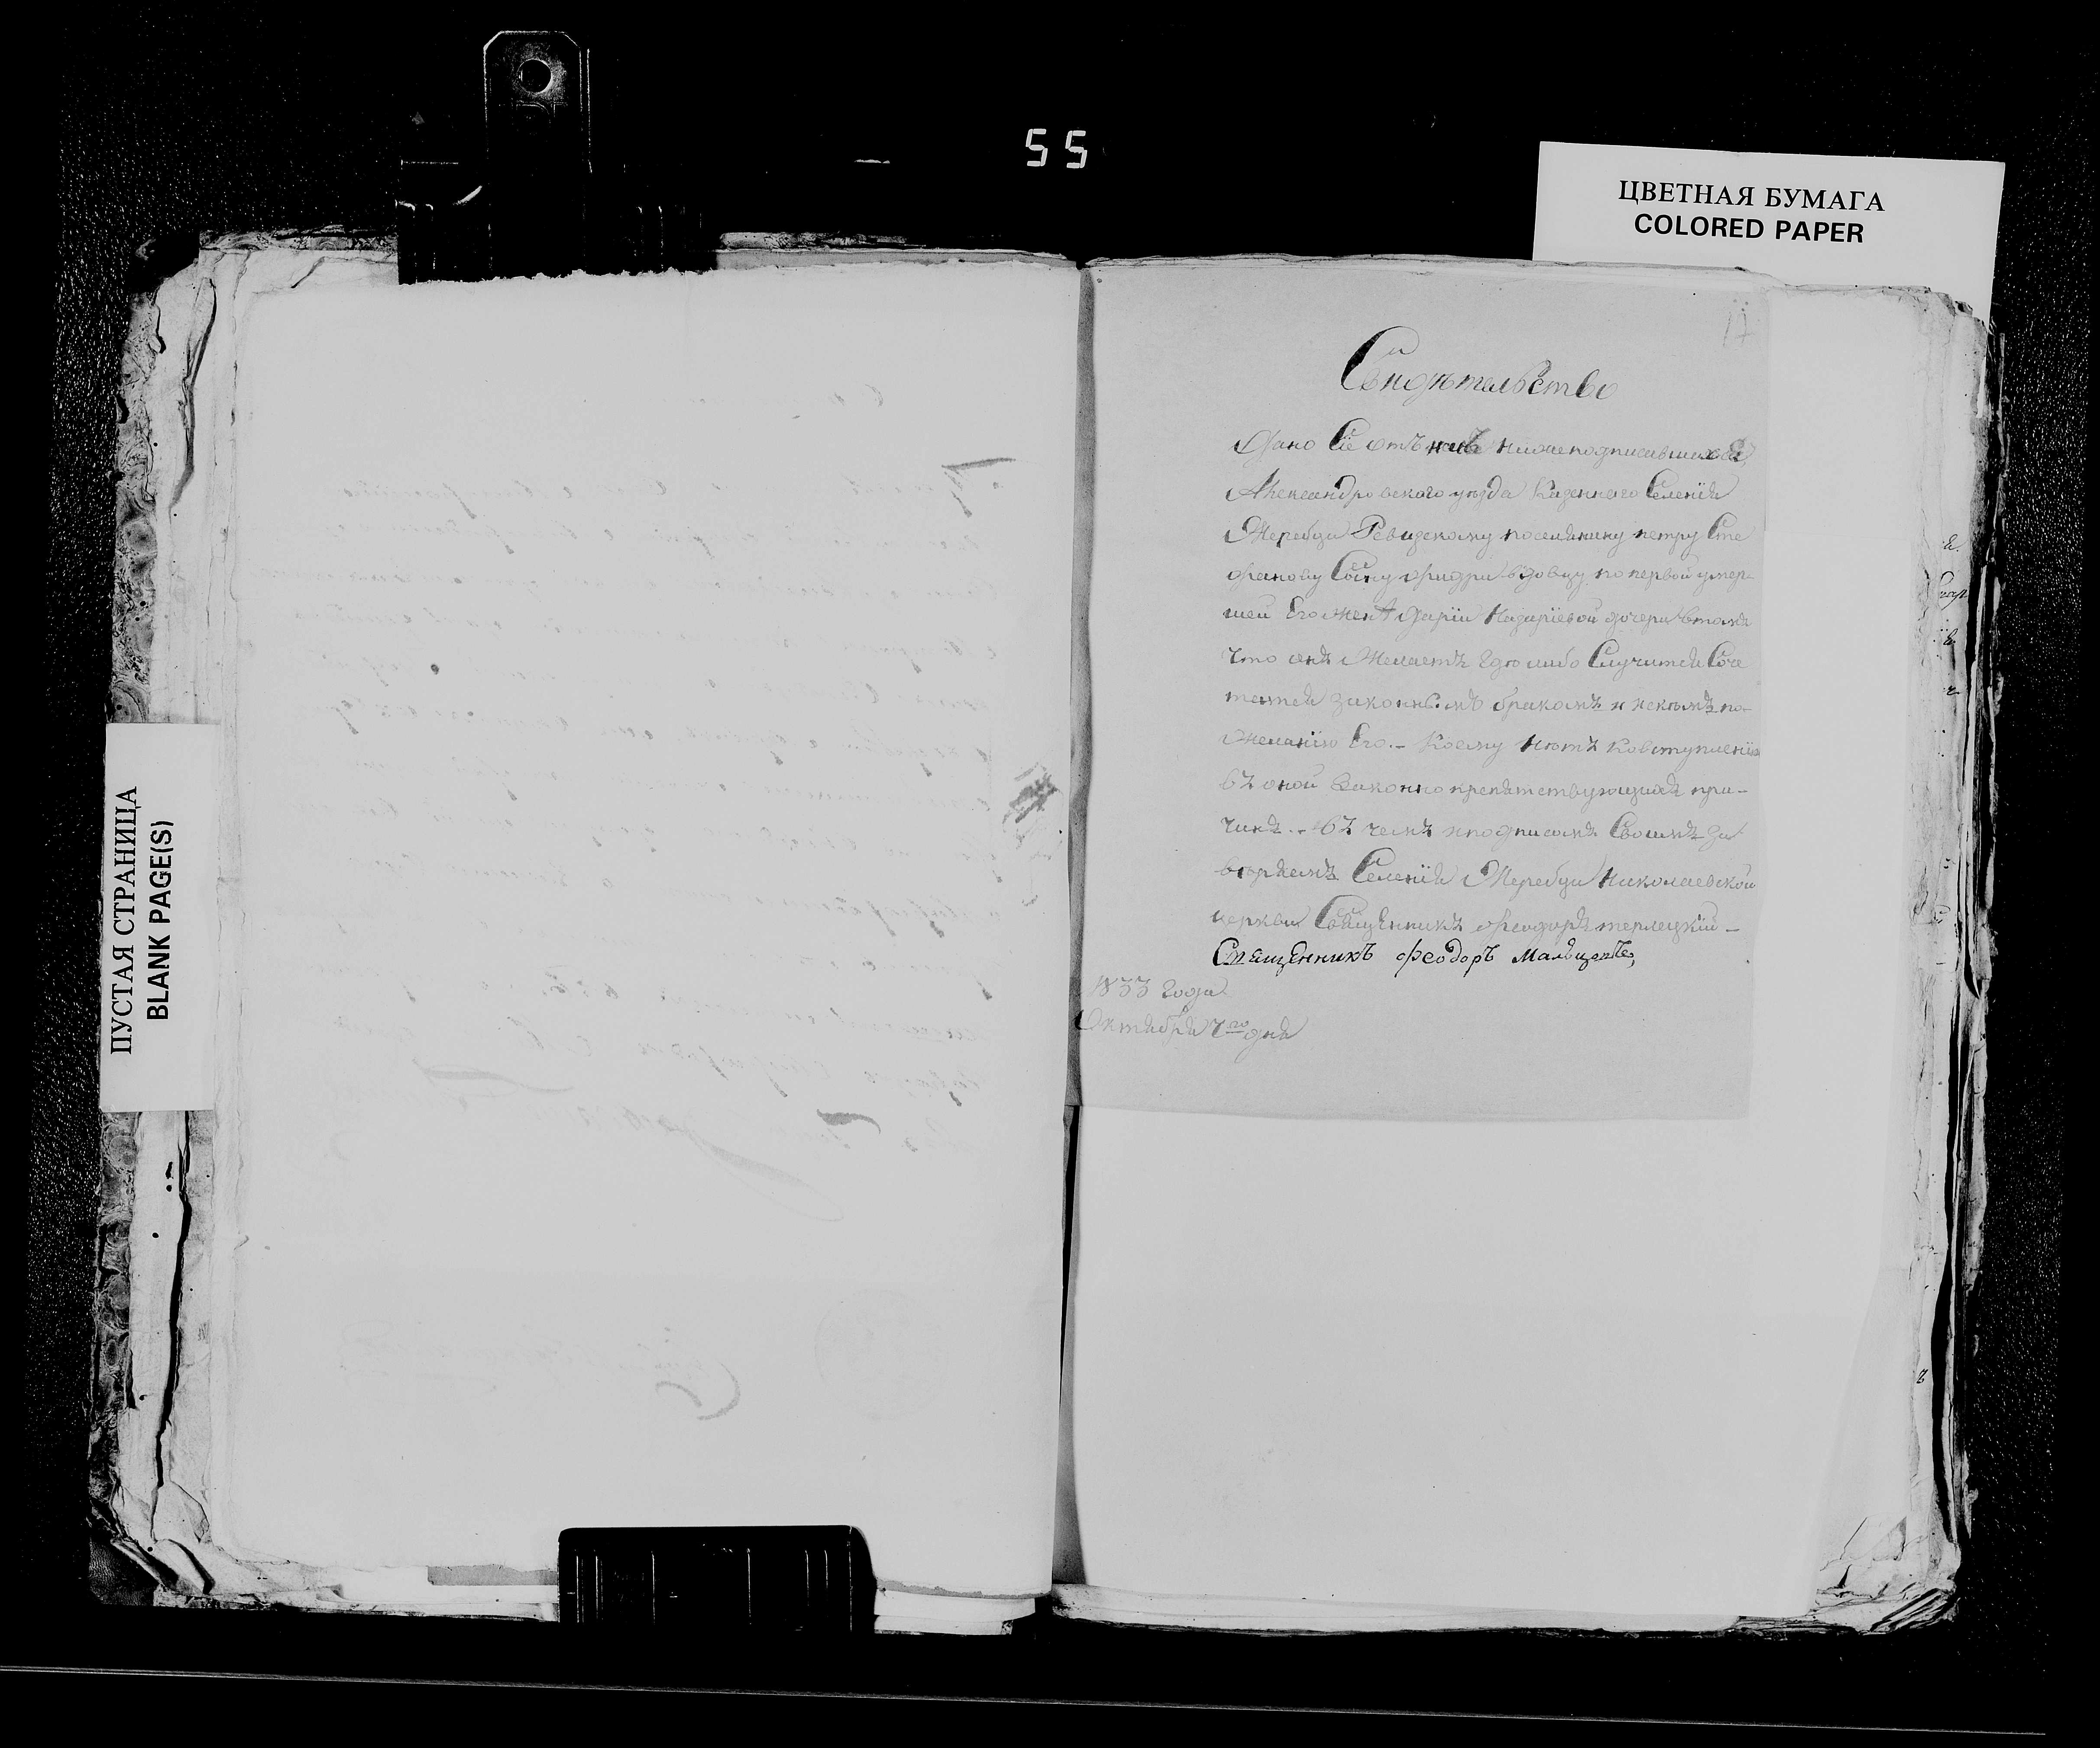 55
ЦВЕТНАЯ БУМАГА
COLORED PAPER
ПУСТАЯ СТРАНИЦА
BLANK PAGE(S)
17
Свидѣтельство
Дано Сіе отъ насъ нижеподписавшихся
Александровского уѣзда Казенного Селенія
Жеребца Ревизскому поселянину петру Сте
фанову Сыну вдовцу по первой умер-
шей Его женѣ Даріи Назаріевой дочери втомъ
что онъ Желаетъ гдѣ либо Случится Соче
татся законнымъ бракомъ и по-
Желанію Его.- Коему нѣтъ Ковступленію
въ оной Законно препятствующихъ при-
чинъ.- въ чемъ и подписомъ Своимъ за
вѣряемъ Селенія Жеребца Николаевской
церкви Священникъ феодоръ терлецкій -
Священникъ феодоръ Мальцовъ,
1833 года
Октября 7го дня